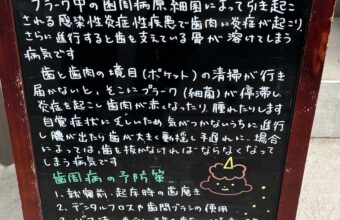 プラーク中の歯周病原細菌によって引き起こ
される感染性炎症性疾患で歯肉に炎症が起こり、
さらに進行すると歯を支えている骨が溶けてしまう
病気です
歯と歯肉の境目(ポケット)の清掃が行き
届かないと、そこにプラーク(細菌)が停滞し
炎症を起こし歯肉が赤くなったり、腫れたりします
自覚症状に乏しいため気がつかないうちに進行
し膿が出たり歯が大きく動揺し手遅れに、場合
によっては、歯を抜かなければならなくなって
しまう病気です
歯周病の予防策
1、就寝前・起床時の歯磨き
2、デンタルフロスや歯間ブラシの使用